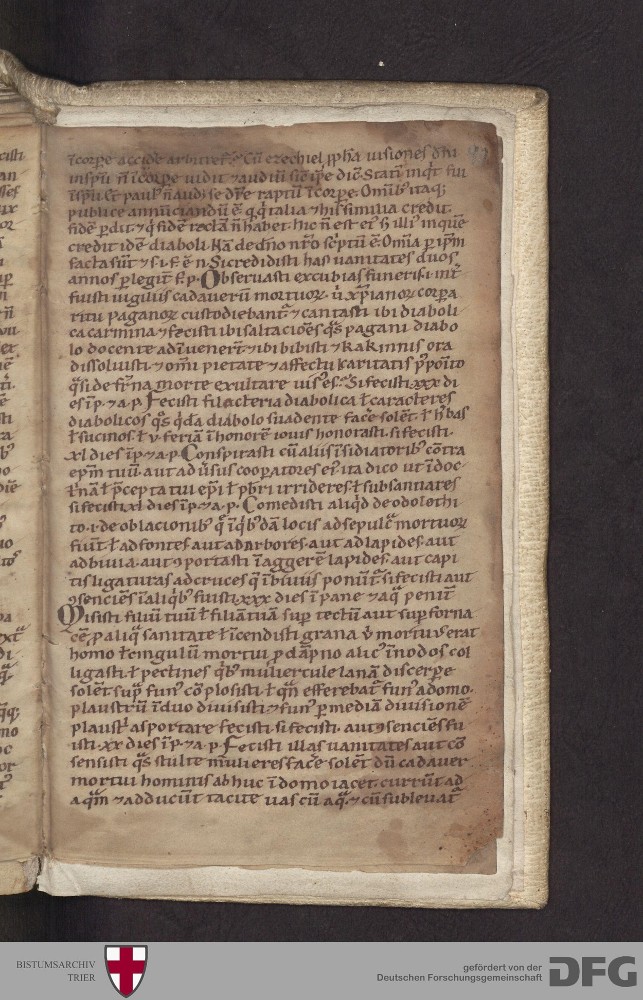 ıcorpe accide arbitret᷑. Cū ezechiel ꝓph̄a uisiones dn̄i
inspū n̄ ıcorpe uidit ⁊ audiui sic̄ ip̄e diē. Statī inqͥt fui
ı̄spū. Et paulꝰ n̄ aud& se dr̄e raptū ı̄corpe. Om̄ibꝰ itaq;
publice annūciandū ē qͥ qͥ talia ⁊ his similia credit.
fidē ꝑdit. ⁊ qͥ fidē rectā n̄ habet. hic n̄ est eiꝰ. sꝫ illiꝰ inquē
credit. idē diaboli. Nā de dn̄o nr̄o sc̄ptū ē. Om̄ia ꝑ ip̄m
facta sūt ⁊ s. i. f. ē. n. Si credidisti has uanitates duos
annos ꝑ legit̄. f. p. Obseruasti excubias funeris. i. int̄
fuisti uigiliis cadauerū mortuoꝝ ū xp̄ianoꝝ corpa
ritu paganoꝝ custodiebant᷑. ⁊ cantasti ibi diaboli
ca carmina. ⁊ fecisti ibi saltacioēs qͣs pagani diabo
lo docente adīuenerūt. ⁊ ibi bibisti ⁊ kakinnis ora
dissoluisti. ⁊ om̄i pietate ⁊ affectu karitatis pͥpoīto
qͣsi de fr̄na morte exultare uisꝰ es. Si fecisti. xxx. di
es ī p. ⁊ a. p. Fecisti filacteria diabolica ł caracteres
diabolicos qͥs qͥda diabolo suadente facē solēt. ł h̄bas
ł sucinos. ł .v. feriā ı̄honorē iouis honorasti. si fecisti.
xl dies ı̄ p. ⁊ a. p. Conspirasti cū aliis ı̄sidiatoribꝰ cōtra
ep̄m tuū. aut aduͥsus cooꝑatores eiꝰ. ita dico ut ı̄doc
t̄nā ł p̄cepta tui ep̄i ł pb̄ri irrideres. ł subsannares
si fecisti. xl dies ı̄ p. ⁊ a. p. Comedisti aliqͥd de odolothi
to. i. de oblacionibꝰ qͣ ı̄qͥbꝰdā locis ad sepulcͣ mortuoꝝ
fiūt. ł ad fontes. aut ad arbores. aut ad lapides. aut
ad biuia. aut ꝯportasti ı̄aggerē lapides. aut capi
tis ligaturas ad cruces qͣ ı̄ biuiis ponūt᷑. si fecisti aut
ꝯsenciēs ı̄aliqͥbꝰ fuisti. xxx dies ı̄ pane ⁊ aqͣ penit̄
Misisti filiū tuū ł filiā tuā sup̄ tectū aut sup̄ forna
cē. p̄ aliqͣ sanitate. ł ı̄cendisti grana uͥ mortuꝰ erat
homo. ł cingulū mortui p̄ dāpno alicꝰ ı̄nodos col
ligasti. ł pectines qͥbꝰ muliercule lanā discerpe
solēt supͣ funꝰ cōplosisti. ł qͣn̄ efferebat᷑ funꝰ a domo.
plaustrū ı̄duo diuisisti. ⁊ funꝰ ꝑ mediā diuisionē
plaustͥ asportare fecisti. si fecisti. aut ꝯsenciēs fu
isti. xx dies ı̄ p. ⁊ a. p. Fecisti illas uanitates aut cō
sensisti qͣs stulte mulieres facē solent. dū cadauer
mortui hominis ab huc ı̄domo iacet. currūt ad
aqͣm ⁊ adducūt tacite uas cū aqͣ. ⁊ cū subleuat᷑
BISTUMSARCHIV
TRIER
gefördert von der
Deutschen Forschungsgemeinschaft
DFG